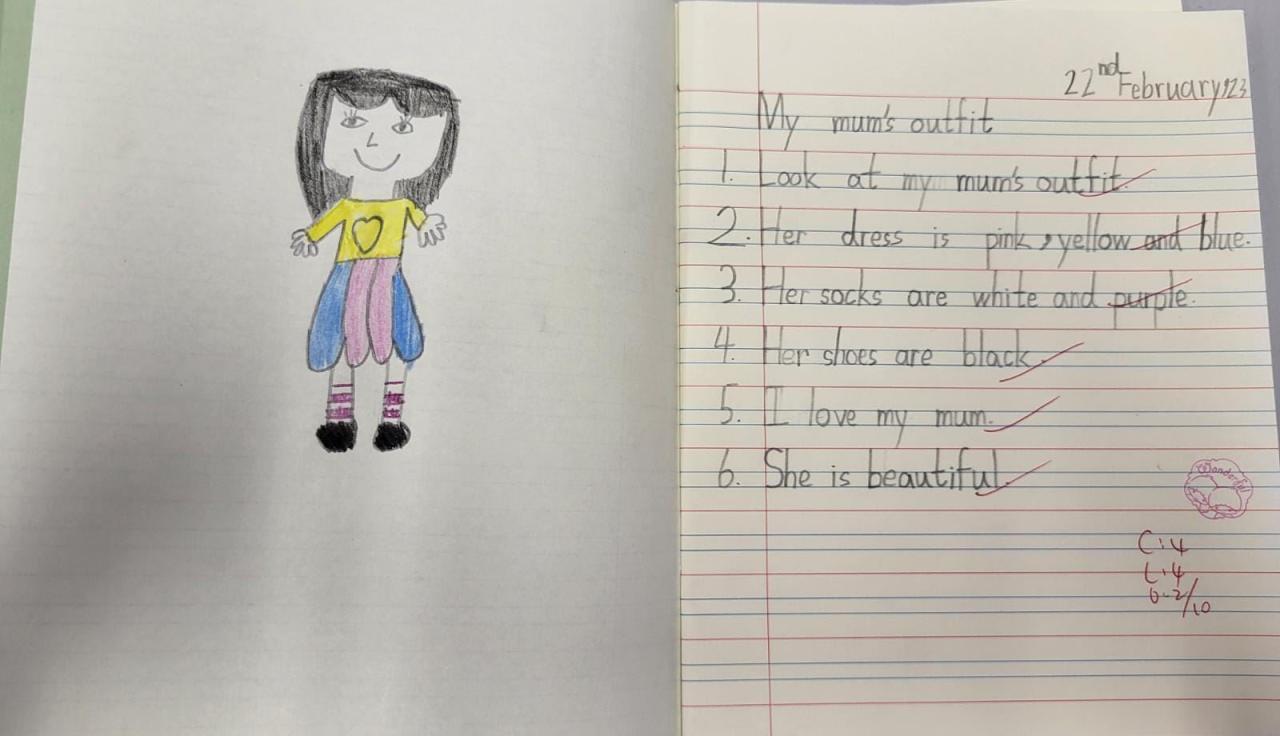 22nd February '23
My mum's outfit
1. Look at my mum's outfit.
2. Her dress is pink, yellow and blue.
3. Her socks are white and purple.
4. Her shoes are black.
5. I love my mum.
6. She is beautiful.
Wonderful
C: 4
L: 4
O: 2/10